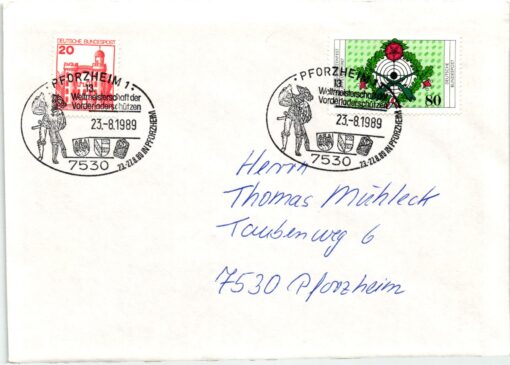 20
DEUTSCHE BUNDESPOST
PFORZHEIM 1
13.
Weltmeisterschaft der
Vorderladerschützen
23.-8.1989
7530
23.-27.8.89 IN PFORZHEIM
DEUTSCHE
BUNDESPOST
80
PFORZHEIM 1
13.
Weltmeisterschaft der
Vorderladerschützen
23.-8.1989
7530
23.-27.8.89 IN PFORZHEIM
Herrn
Thomas Mühleck
Taubenweg 6
7530 Pforzheim